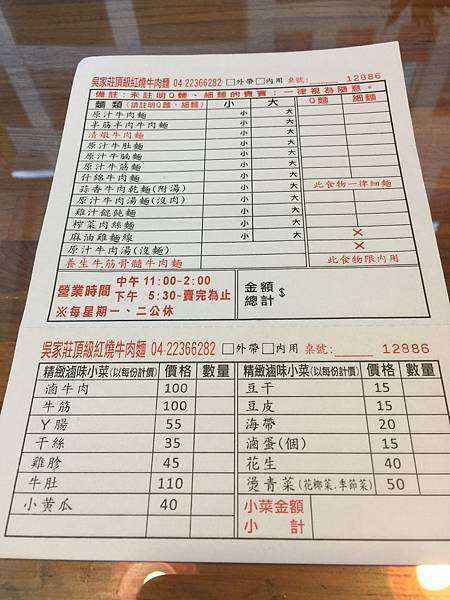 吳家莊頂級紅燒牛肉麵 04-22366282 □外帶□內用 桌號:_____ 12886
備註:未註明Q麵、細麵的貴賓;一律視為隨意。
麵類(請註明Q麵、細麵) 小 大 Q麵 細麵
原汁牛肉麵 小 大
半筋半肉牛肉麵 小 大
清燉牛肉麵 小 大
原汁牛肚麵 小 大
原汁牛腩麵 小 大
原汁牛筋麵 小 大
什錦牛肉麵 小 大
蒜香牛肉乾麵(附湯) 小 大 此食物一律細麵
原汁牛肉湯麵(沒肉) 小 大
雞汁餛飩麵 小 大
榨菜肉絲麵 小 大
麻油雞麵線 小 大 ×
原汁牛肉湯(沒麵) ×
養生牛筋骨髓牛肉麵 此食物限內用
營業時間 中午 11:00-2:00
下午 5:30~賣完為止
※每星期一、二公休
金額總計 $
吳家莊頂級紅燒牛肉麵 04-22366282 □外帶□內用 桌號:_____ 12886
精緻滷味小菜(以每份計價) 價格 數量 精緻滷味小菜(以每份計價) 價格 數量
滷牛肉 100 豆干 15
牛筋 100 豆皮 15
Y腸 55 海帶 20
干絲 35 滷蛋(個) 15
雞胗 45 花生 40
牛肚 110 燙青菜(花椰菜.季節菜) 50
小黃瓜 40 小菜金額
小計